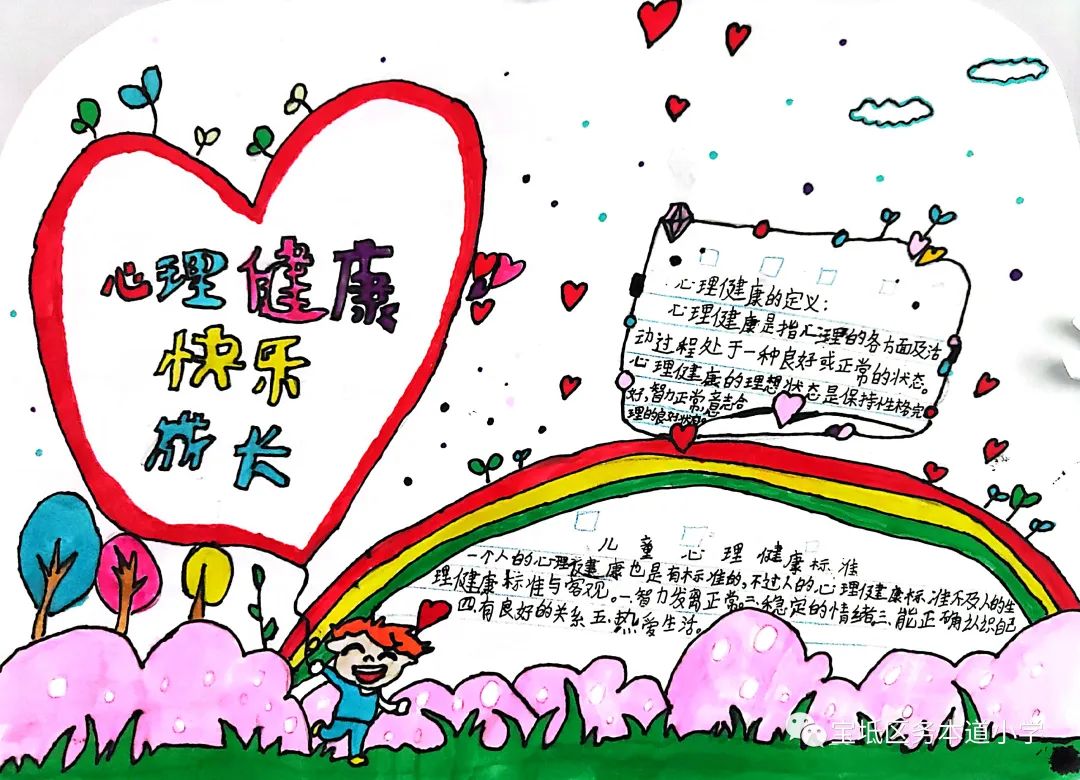 心理健康
快乐
成长
心理健康的定义：
心理健康是指心理的各方面及活
动过程处于一种良好或正常的状态。
心理健康的理想状态是保持性格完
好、智力正常意志合
理的良好状态。
儿童心理健康标准
一个人的心理健康也是有标准的,不过人的心理健康标准不及人的生
理健康标准与客观。一智力发离正常二稳定的情绪三、能正确认识自己
四有良好的关系五、热爱生活。
宝坻区务本道小学